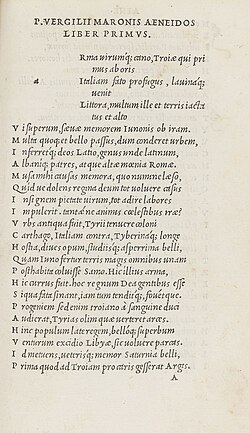 P. VERGILII MARONIS AENEIDOS
LIBER PRIMVS.
Rma uirumq; cano, Troiæ qui pri
mus ab oris
a Italiam fato profugus, lauinaq;
uenit
Littora, multum ille et terris iacta
tus et alto
V i superum, sæuæ memorem Iunonis ob iram.
M ulta quoq; et bello passus, dum conderet urbem,
I nferretq; deos Latio, genus unde latinum,
A lbaniq; patres, atque altæ mœnia Romæ.
M usa mihi causas memora, quo numine læso,
Q uid ue dolens regina deum tot uoluere casus
I nsignem pietate uirum, tot adire labores
I mpulerit. tantæ ne animis cœlestibus iræ?
V rbs antiqua fuit, Tyrii tenuere coloni
C arthago, Italiam contra, Tyberinaq; longe
H ostia, diues opum, studiisq; asperrima belli,
Q uam Iuno fertur terris magis omnibus unam
P osthabita coluisse Samo. Hic illius arma,
H ic currus fuit. hoc regnum Dea gentibus esse
S i qua fata sinant, iam tum tenditq;, fouetque.
P rogeniem sed enim troiano a sanguine duci
A udierat, Tyrias olim quæ uerteret arces.
H inc populum late regem, belloq; superbum
V enturum excidio Libyæ, sic uoluere parcas.
I d metuens, ueterisq; memor Saturnia belli,
P rima quod ad Troiam pro caris gesserat Argis.
A